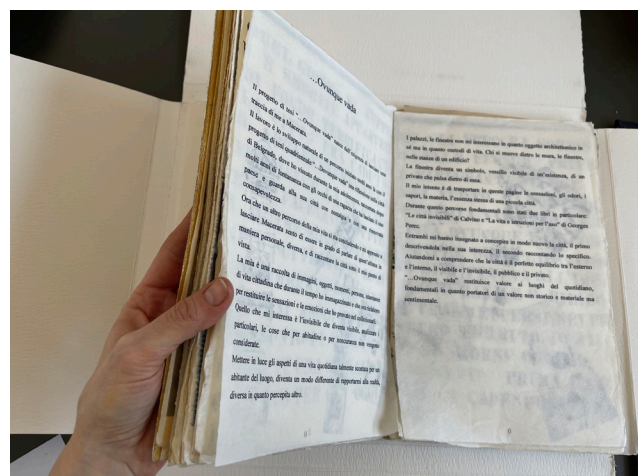 ...Ovunque vada
Il progetto di tesi "...Ovunque vada" nasce dall'esigenza di lasciare una
traccia di me a Macerata.
Il lavoro è lo sviluppo naturale di un percorso iniziato molti anni fa con il
progetto di tesi quadriennale "...Ovunque vada" una riflessione sulla città
di Belgrado, dove ho vissuto durante la mia adolescenza, raccontata dopo
molti anni di lontananza con gli occhi di una ragazza che ha lasciato il suo
paese e guarda alla sua città con nostalgia e con una rinnovata
consapevolezza.
Ora che un altro percorso della mia vita si sta concludendo e mi appresto a
lasciare Macerata sento di essere in grado di parlare di quest'ultima in
maniera personale, diversa, e di raccontare la città sotto il mio punto di
vista.
La mia è una raccolta di immagini, oggetti, momenti, persone, istantanee
di vita cittadina che durante il tempo ho immagazzinato e che ora rielaboro
per restituire le sensazioni e le emozioni che ho provato nel collezionarli.
Quello che mi interessa è l'invisibile che diventa visibile, analizzare i
particolari, le cose che per abitudine o per noncuranza non vengono
considerate.
Mettere in luce gli aspetti di una vita quotidiana talmente scontata per un
abitante del luogo, diventa un modo differente di rapportarmi alla realtà,
diversa in quanto percepita altro.
I palazzi, le finestre non mi interessano in quanto oggetto architettonico in
sé ma in quanto custodi di vita. Chi si muove dietro le mura, le finestre,
nelle stanze di un edificio?
La finestra diventa un simbolo, vessillo visibile di un'esistenza, di un
privato che pulsa dietro di essa.
Il mio intento è di trasportare in queste pagine le sensazioni, gli odori, i
sapori, la materia, l'essenza stessa di una piccola città.
Durante questo percorso fondamentali sono stati due libri in particolare:
"Le città invisibili" di Calvino e "La vita e istruzioni per l'uso" di Georges
Perec.
Entrambi mi hanno insegnato a concepire in modo nuovo la città, il primo
descrivendola nella sua interezza, il secondo raccontando lo specifico.
Aiutandomi a comprendere che la città è il perfetto equilibrio tra l'esterno
e l'interno, il visibile e l'invisibile, il pubblico e il privato.
"...Ovunque vada" restituisce valore ai luoghi del quotidiano,
fondamentali in quanto portatori di un valore non storico e materiale ma
sentimentale.